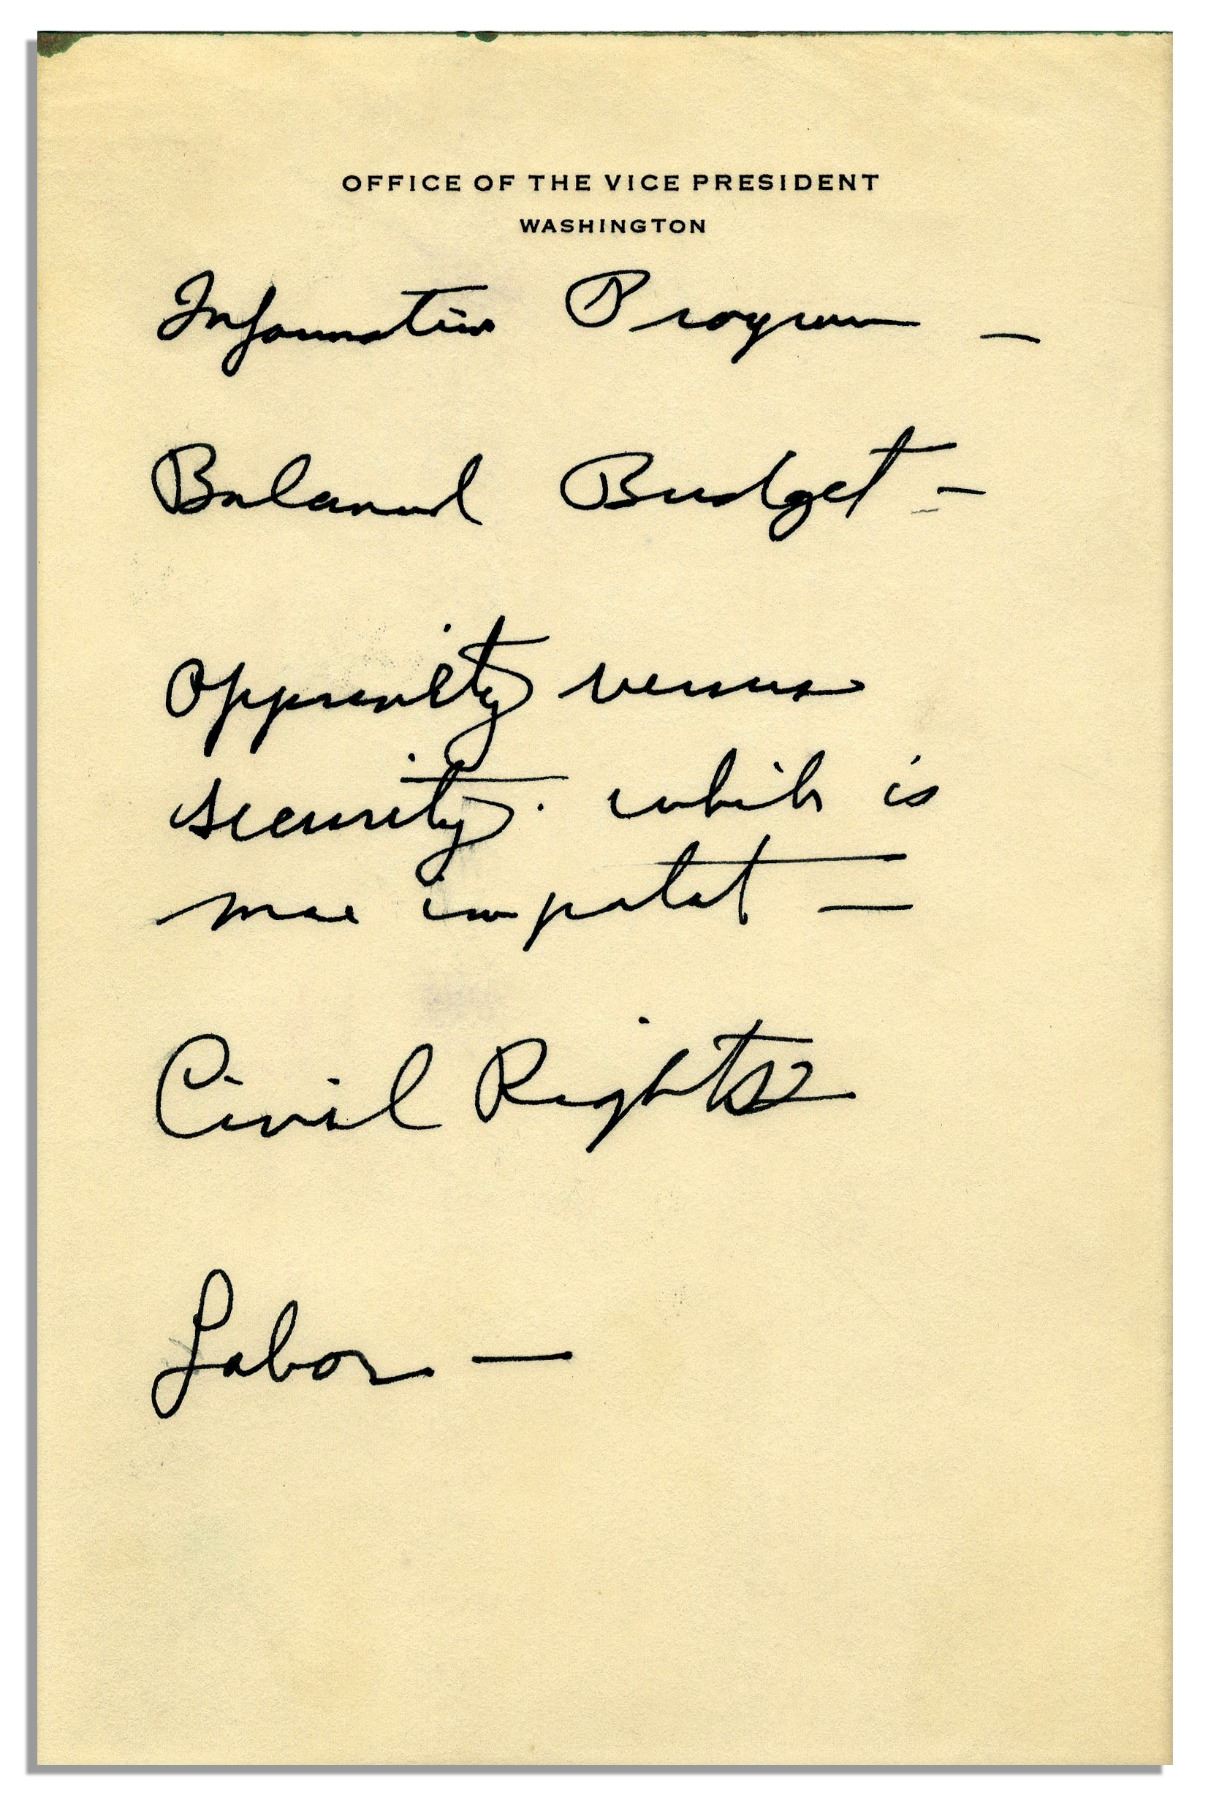 OFFICE OF THE VICE PRESIDENT
WASHINGTON
Information Program —
Balanced Budget —
Opportunity versus
security. which is
more important —
Civil Rights
Labor —